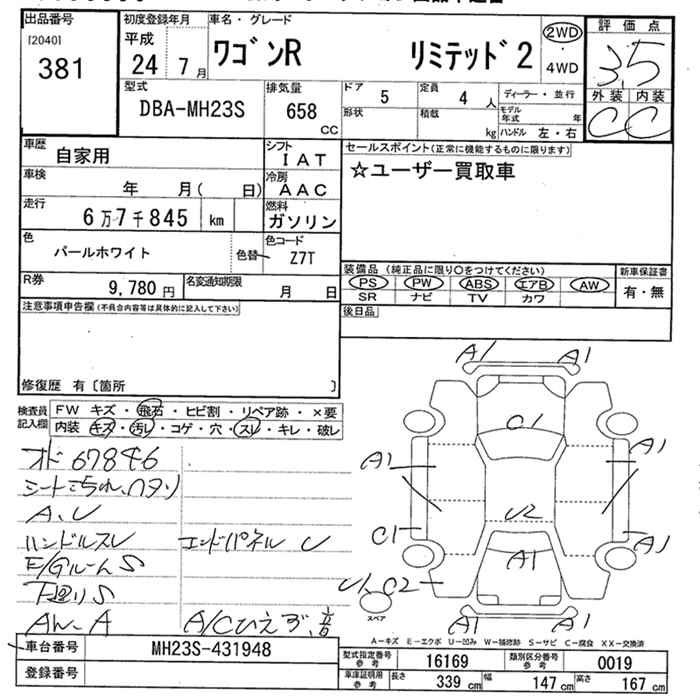 出品番号
[2040]
381
初度登録年月
平成
24 7月
車名・グレード
ワゴンR リミテッド2
2WD
・
4WD
評価点
3.5
外装 内装
C C
型式
DBA-MH23S
排気量
658
CC
ドア
5
定員
4 人
ディーラー・並行
形状
積載
kg
モデル年式 年
ハンドル 左・右
車歴
自家用
シフト
IAT
車検
年 月( 日)
冷房
AAC
走行
6万7千845 km
燃料
ガソリン
セールスポイント(正常に機能するものに限ります)
☆ユーザー買取車
色
パールホワイト
色替
色コード
Z7T
R券
9,780 円
名変通知期限
月 日
装備品(純正品に限り○をつけてください)
PS PW ABS エアB AW
SR ナビ TV カワ
新車保証書
有・無
後日品
注意事項申告欄(不具合内容等は具体的に記入して下さい)
修復歴 有〔箇所 〕
検査員
記入欄
FW キズ・飛石・ヒビ割・リペア跡・×要
内装 キズ・汚レ・コゲ・穴・スレ・キレ・破レ
オド 67846
シートよごれ、ヘタリ
A、U
ハンドルスレ
エンドパネル U
E/Gルーム S
下廻り S
A/Cひえず、音
A1 A1
C1
A1 A1
U2
C1 A1
A1
U1、C2
スペア
A1 A1
A-キズ E-エクボ U-凹み W-補修跡 S-サビ C-腐食 XX-交換済
車台番号
MH23S-431948
登録番号
型式指定番号
参考
16169
類別区分番号
参考
0019
車庫証明用
参考
長さ 339 cm
幅 147 cm
高さ 167 cm